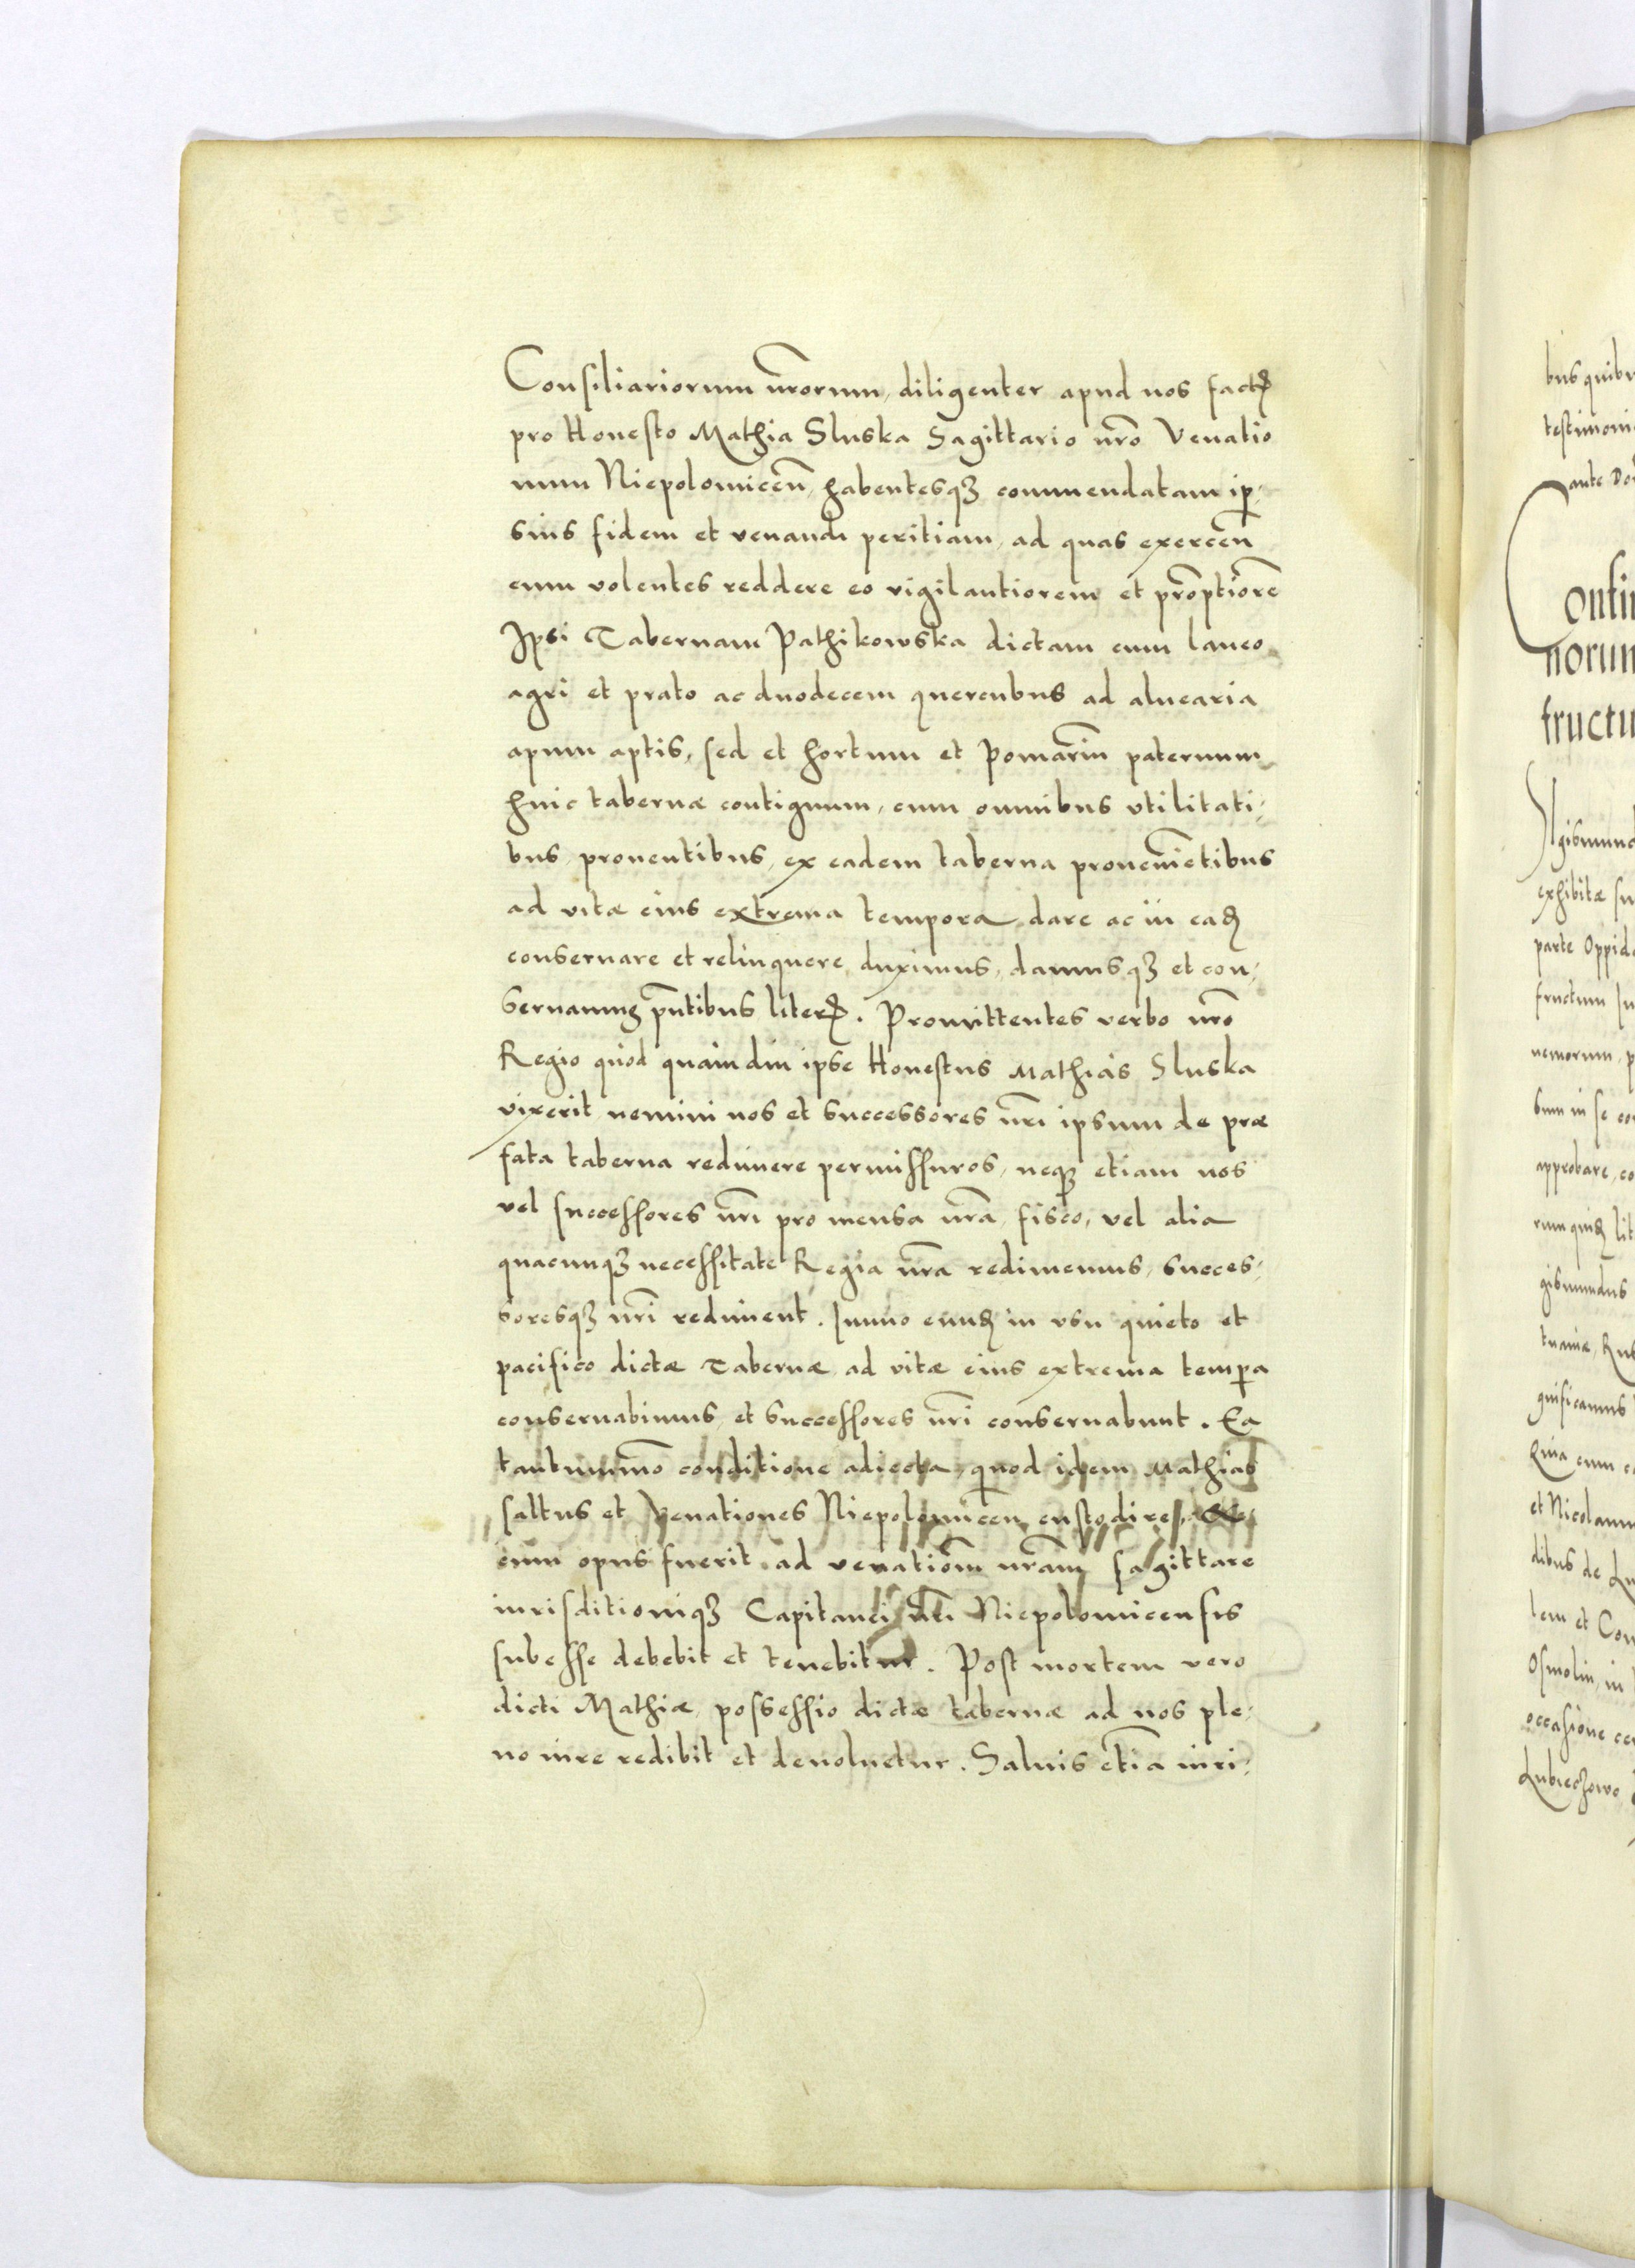 Consiliariorum nrorum, diligenter apud nos fact
pro Honesto Mathia Sluska Sagittario nro Venatio
num Niepolomicen, habentesqꝫ commendatam ip-
sius fidem et venandi peritiam, ad quas exercen
eum volentes reddere eo vigilantiorem et promptiorē
Ipsi Tabernam Pathikowska dictam cum laneo
agri et prato ac duodecem quercubus ad aluearia
apum aptis, sed et hortum et Pomariu paternum
huic tabernæ contiguum, cum omnibus vtilitati-
bus, prouentibus, ex eadem taberna prouenietibus
ad vitæ eius extrema tempora dare ac in eadꝫ
conseruare et relinquere duximus, damusqꝫ et con-
seruamus pntibus liter. Promittentes verbo nro
Regio quod quamdiu ipse Honestus Mathias Sluska
vixerit nemini nos et successores nri ipsum de præ
fata taberna redimere permissuros, neqꝫ etiam nos
vel successores nri pro mensa nra, fisco, vel alia
quacunqꝫ necessitate Regia nra redimemus, succes-
soresqꝫ nri rediment. Immo eundꝫ in vsu quieto et
pacifico dictæ Tabernæ, ad vitæ eius extrema tempa
conseruabimus, et successores nri conseruabunt. Ea
tantummo conditione adiecta, quod idem Mathias
saltus et Venationes Niepolomicen custodire,
cum opus fuerit ad venationm nram sagittare
iurisditioniqꝫ Capitanei nri Niepolomicensis
subesse debebit et tenebitur. Post mortem vero
dicti Mathiæ, possessio dictæ tabernæ ad nos ple-
no iure redibit et deuoluetur. Saluis etia iuri-
bus quibu
testimoni
ante
norum
fructu
exhibitæ
parte Oppid
fructum
nemorum
sum in se
approbare
gismundus
tuaniæ
gnificamus
Quia cum
et Nicolaum
dibus de
lem et Con
Osmolin, in
occasione
Lubieczowo